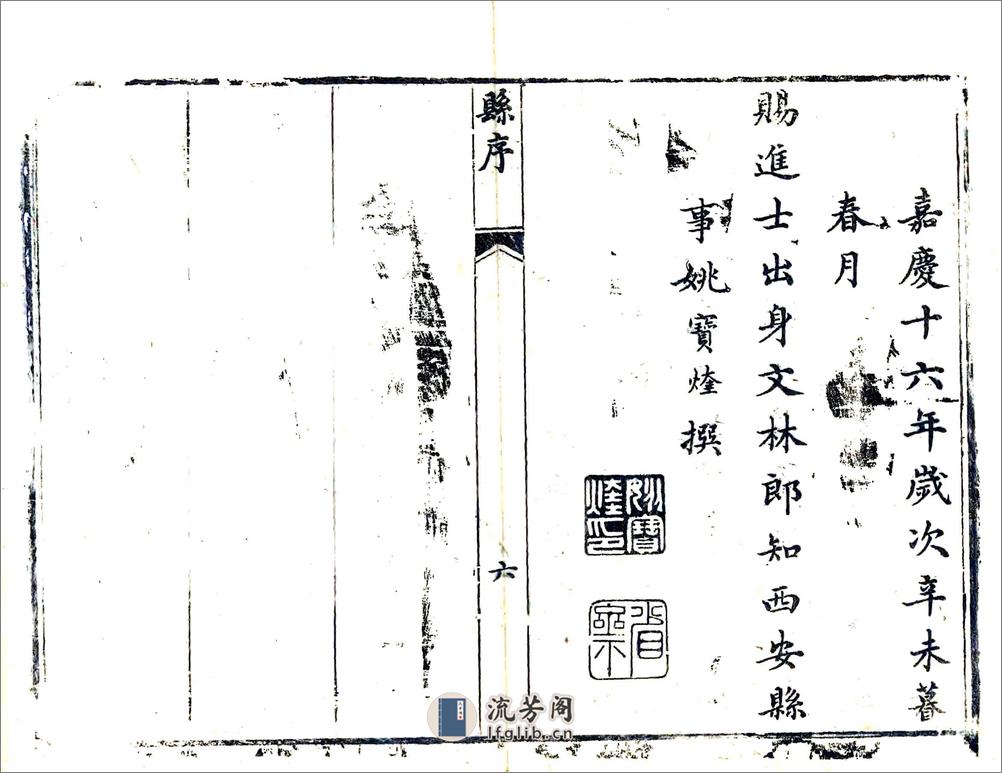 嘉慶十六年歲次辛未暮
春月
賜進士出身文林郎知西安縣
事姚寶煃撰
姚寶
煃印
縣序
六
流芳阁
lfglib.cn